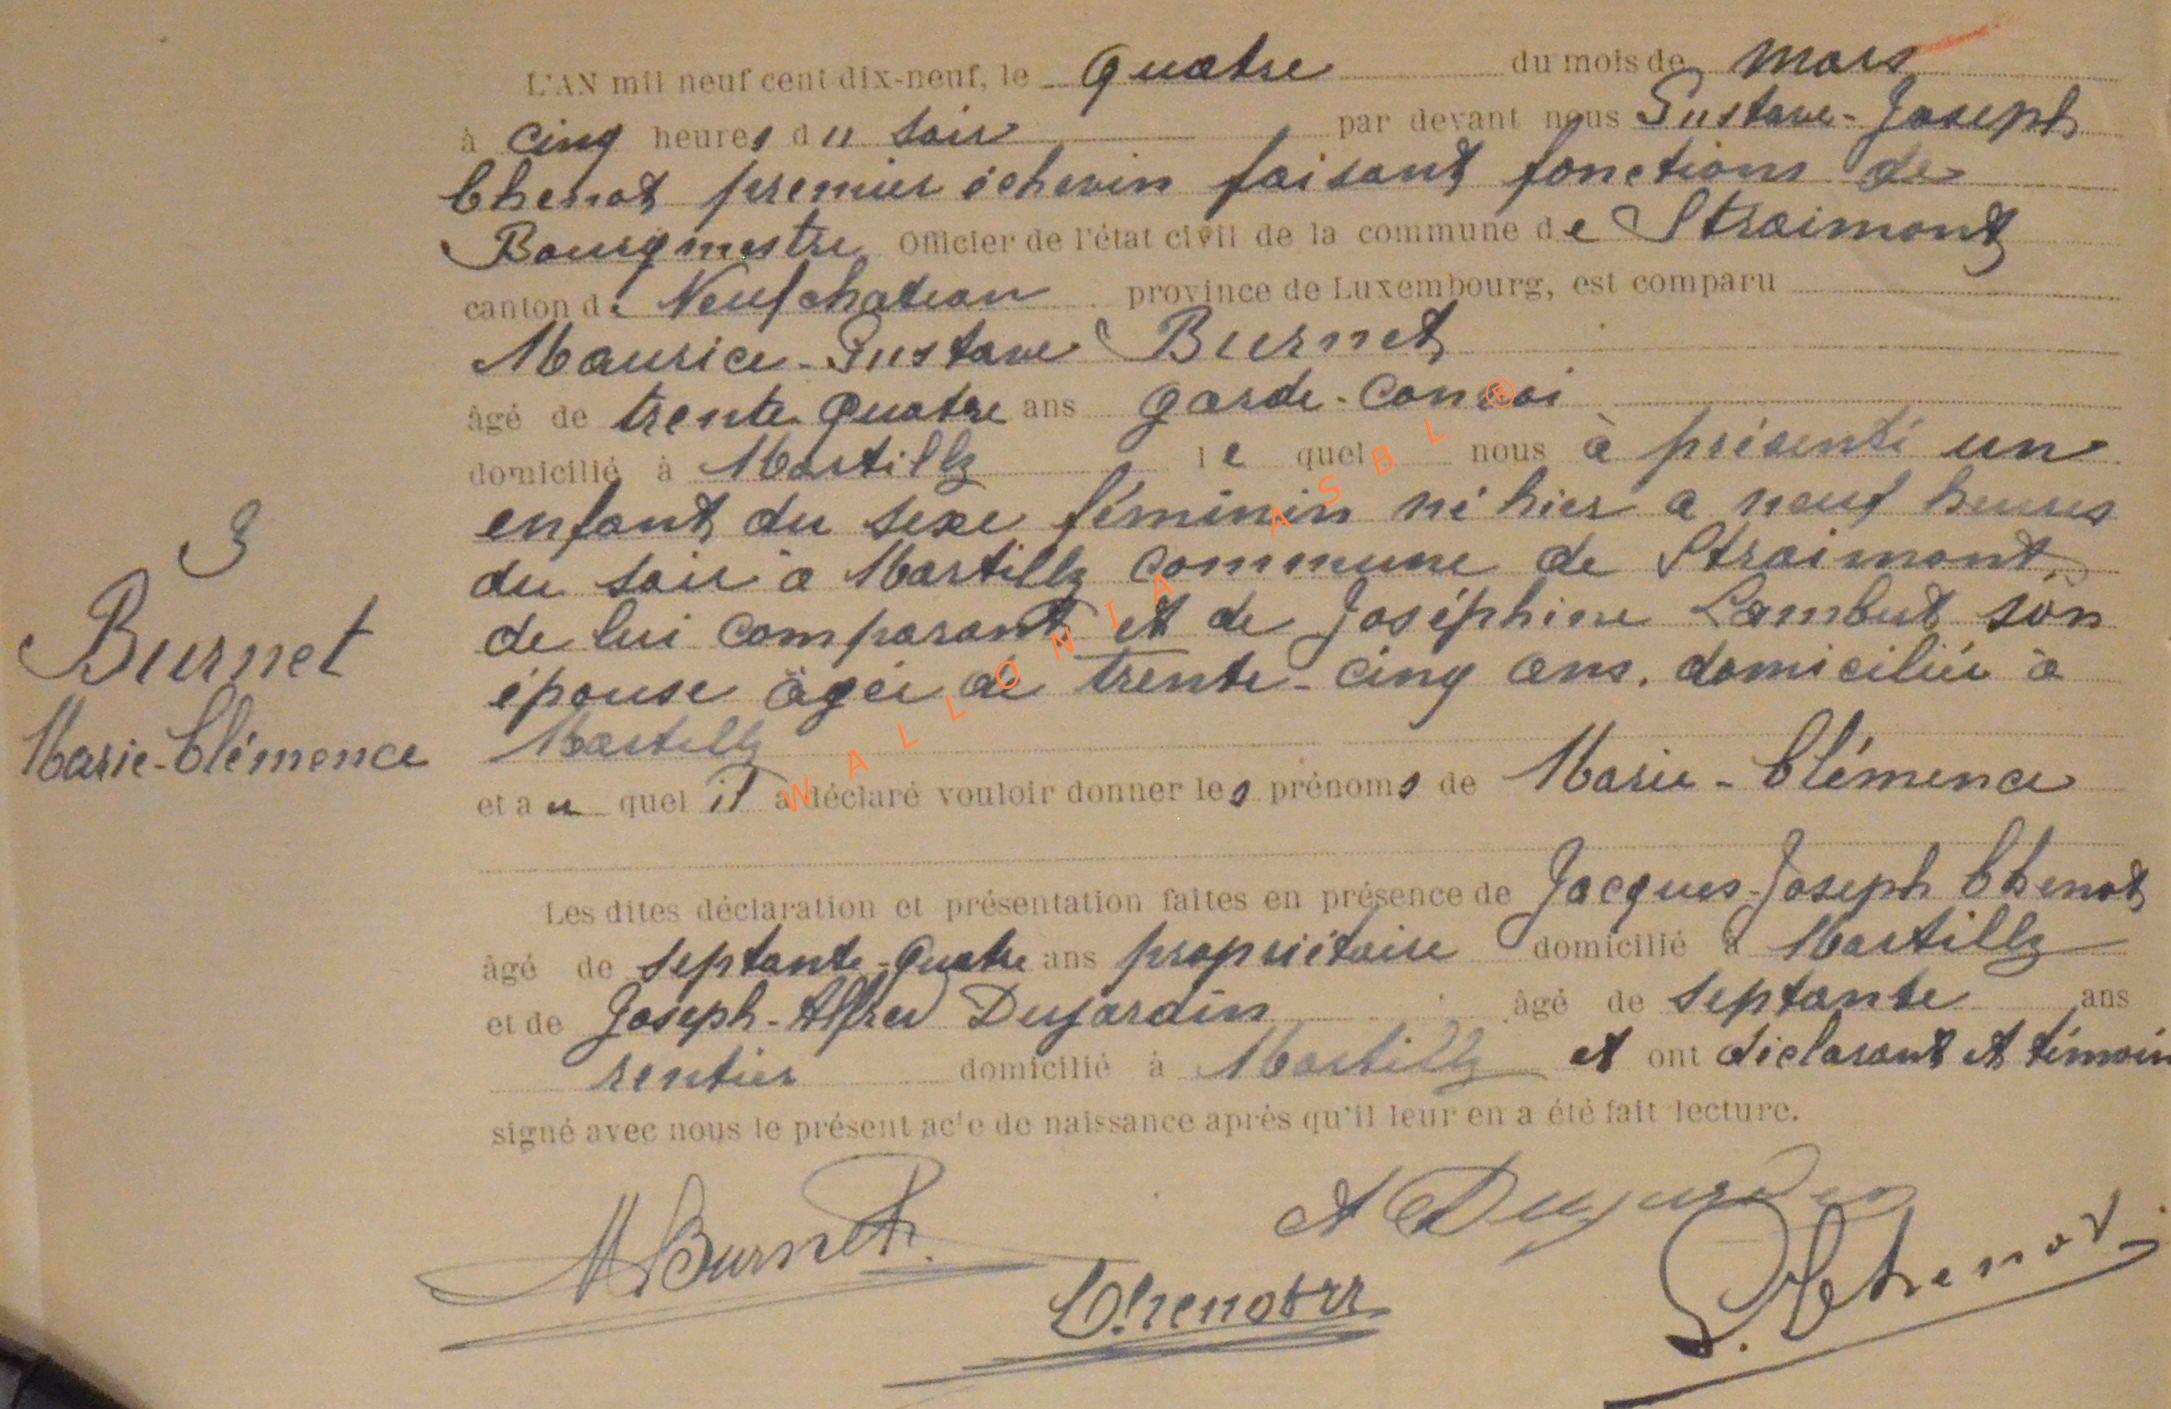 L'AN mil neuf cent dix-neuf, le quatre du mois de mars
à cinq heures du soir par devant nous Gustave-Joseph
Chenot premier échevin faisant fonctions de
Bourgmestre Officier de l'état civil de la commune de Straimont
canton de Neufchateau province de Luxembourg, est comparu
Maurice-Gustave Burnet
âgé de trente quatre ans garde-convoi
domicilié à Martilly le quel nous à présenté un
enfant du sexe féminin né hier a neuf heures
du soir à Martilly commune de Straimont,
3
de lui comparant et de Joséphine Lambert son
Burnet
épouse âgée de trente-cinq ans. domiciliée à
Marie-Clémence
Martilly
et au quel il a déclaré vouloir donner les prénoms de Marie-Clémence
Les dites déclaration et présentation faites en présence de Jacques-Joseph Chenot
âgé de septante-quatre ans propriétaire domicilié à Martilly
et de Joseph-Alfred Dujardin âgé de septante ans
rentier domicilié à Martilly et ont déclarant et témoin
signé avec nous le présent acte de naissance après qu'il leur en a été fait lecture.
M Burnet
A Dujardin
Chenot
Chenot
WALLONIA ASBL ®